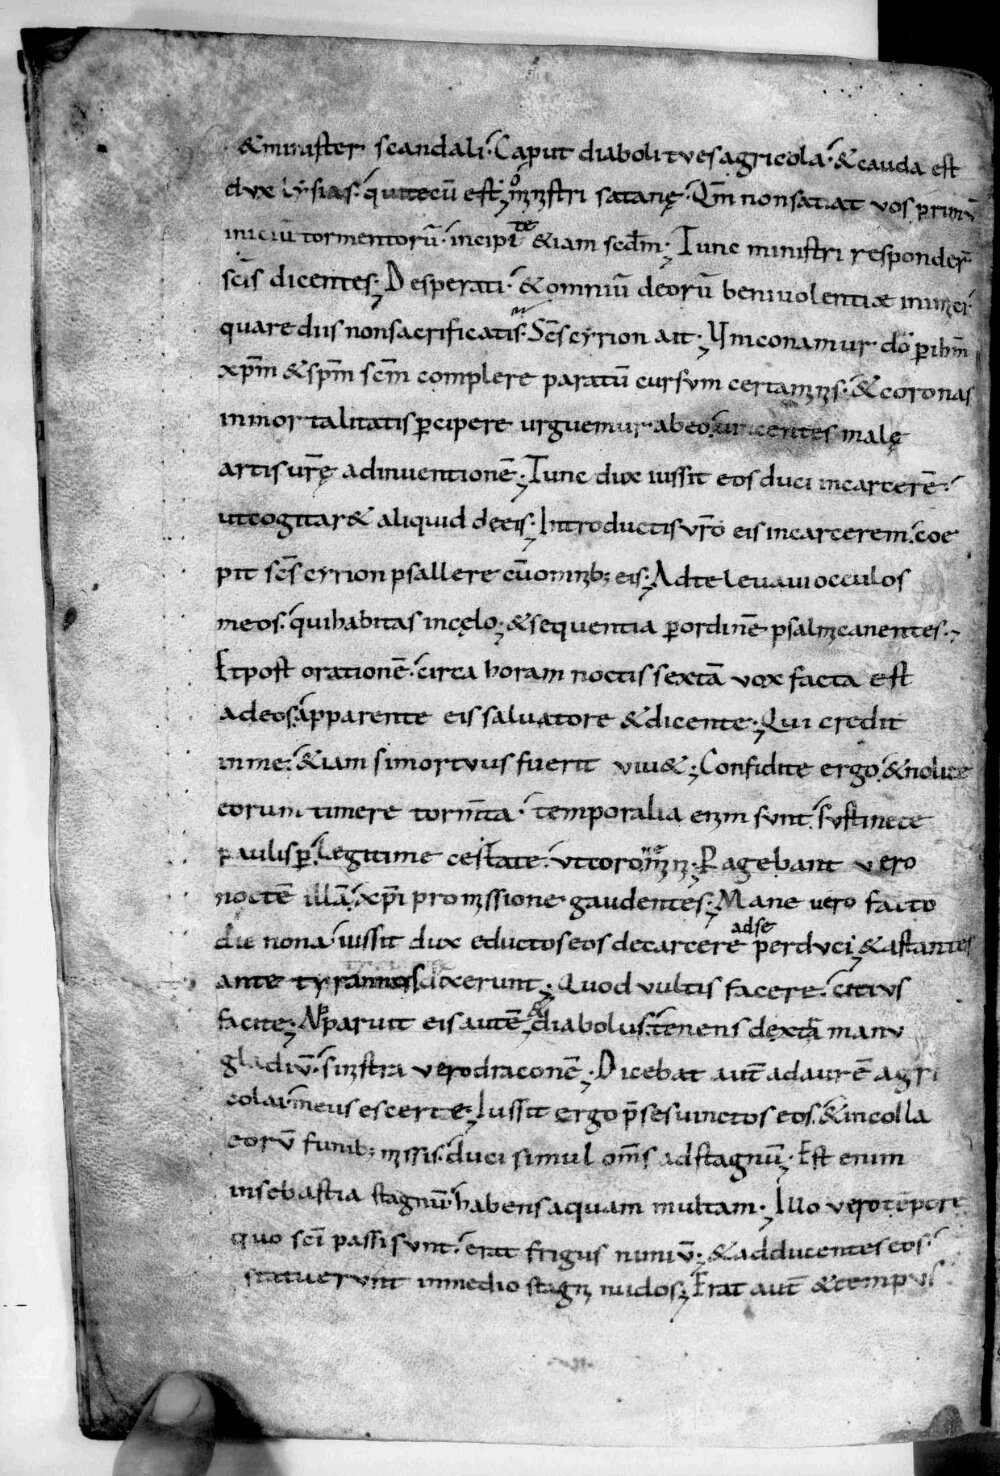 & minister scandali. Caput diaboli tu es agricola. & cauda est
dux lysias. qui tecū est. ministri satanę. Qm̄ non satiat vos primū
iniciū tormentorū. incipite &iam scdm̄. Tunc ministri responderт̄
scīs dicentes. Desperati. & omniū deorū benivolentiae inimici.
quare diis non sacrificatis. Scs̄ cyrion ait. Nin conamur dō p ihm̄
xpm̄ & spm̄ scm̄ complere paratū cursum certaminis. & coronas
inmortalitatis pcipere urguemur ab eo. vincentes malę
artis urę̄ adinventionē. Tunc dux iussit eos duci in carcerē.
ut cogitar& aliquid de eis. Introductis vrō eis in carcerem. coe
pit scs̄ cyrion psallere cū omnib; eis. Ad te levavi occulos
meos. qui habitas in cęlo. & sequentia p ordinē psalmi canentes.
Et post orationē. circa horam noctis sextā vox facta est
ad eos. apparente eis salvatore & dicente. Qui credit
in me. &iam si mortuus fuerit viu&. Confidite ergo. & nolite
eorum timere tormt̄a. temporalia enim sunt. sustinete
paulisp. Legitime certate. ut coronemini. P agebant vero
noctē illā. xpī promissione gaudentes. Mane vero facto
die nona. iussit dux eductos eos de carcere ad se perduci. & astantes
ante tyrannos dixerunt. Quod vultis facere. citius
facite. Apparuit eis autē & diabolus. tenens dextā manu
gladiū. sinistra vero draconē. Dicebat aut̄ ad aurē agri
colai. meus es certe. Iussit ergo p̄ses vinctos eos. & in colla
eorū funib; missis. duci simul om̄s ad stagnū. Est enim
in sebastia stagnū habens aquam multam. Illo vero tēpore
quo scī passi sunt. erat frigus nimiū. & adducentes eos.
statuerunt in medio stagni nudos. Erat aut̄ & tempus